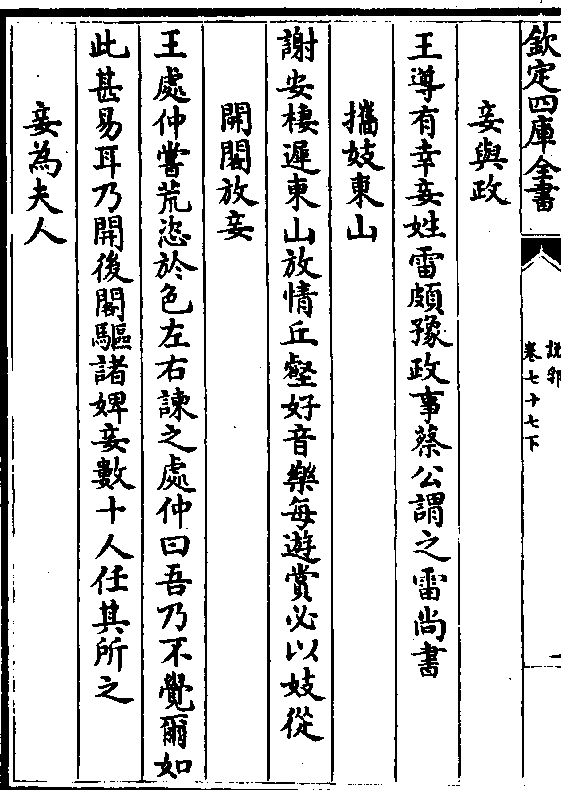 欽定四庫全書
說郛
卷七十七下
妾與政
王導有幸妾姓雷頗豫政事蔡公謂之雷尚書
攜妓東山
謝安棲遲東山放情丘壑好音樂每遊賞必以妓從
開閤放妾
王處仲嘗荒恣於色左右諫之處仲曰吾乃不覺爾如
此甚易耳乃開後閤驅諸婢妾數十人任其所之
妾為夫人